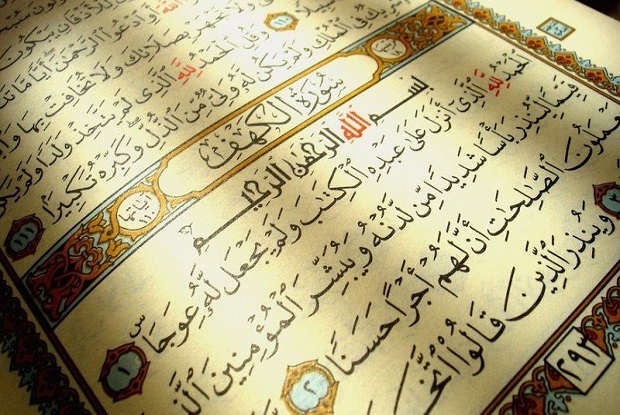 ٱللَّهَ أَوِ ٱدْعُوا۟ ٱلرَّحْمَٰنَ أَيًّا مَّا
وَلَا تَجْهَرْ بِصَلَاتِكَ وَلَا تُخَافِتْ بِهَا
وَقُلِ ٱلْحَمْدُ لِلَّهِ ٱلَّذِى لَمْ يَتَّخِذْ وَلَدًا وَلَمْ يَكُ
شَرِيكٌ فِى ٱلْمُلْكِ وَلَمْ يَكُن لَّهُۥ وَلِىٌّ مِّنَ ٱلذُّلِّ وَكَبِّرْهُ تَكْبِيرًۢا ١١١
سُورَةُ ٱلْكَهْفِ
بِسْمِ ٱللَّهِ ٱلرَّحْمَٰنِ ٱلرَّحِيمِ
ٱلْحَمْدُ لِلَّهِ ٱلَّذِىٓ أَنزَلَ عَلَىٰ عَبْدِهِ ٱلْكِتَٰبَ وَلَمْ يَجْعَل لَّهُۥ عِوَجَا ۜ ١
قَيِّمًا لِّيُنذِرَ بَأْسًا شَدِيدًا مِّن لَّدُنْهُ وَيُبَشِّرَ ٱلْمُؤْمِنِينَ ٱلَّذِ
يَعْمَلُونَ ٱلصَّٰلِحَٰتِ أَنَّ لَهُمْ أَجْرًا حَسَنًا ٢
٣ وَيُنذِرَ ٱلَّذِينَ قَالُوا۟ ٱتَّخَ
٢٩٣